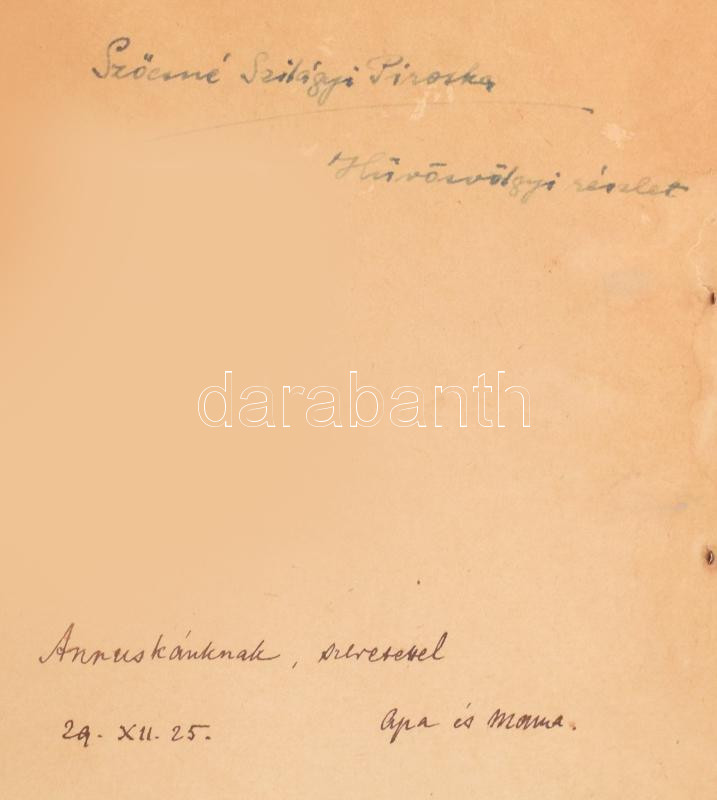 Szőcsné Szilágyi Piroska
Hűvösvölgyi részlet
darabanth
Annuskánknak, szeretettel
29. XII. 25.
Apa és Mama.